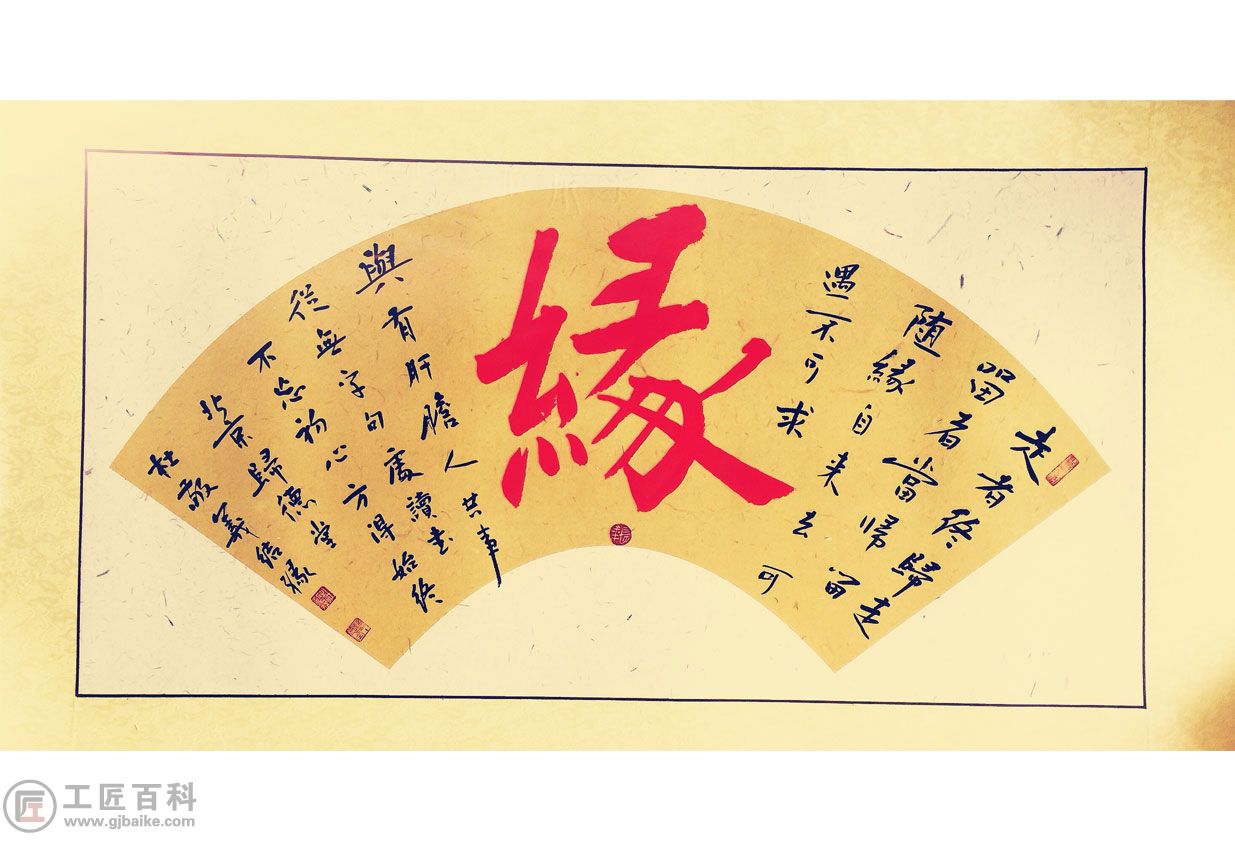 走者终歸走
留者當帰留
随緣自来去可
遇不可求
緣
與有肝膽人共事
從無字句處讀書
不忘初心方得始终
北京歸德堂
杜敬義结缘
工匠百科
www.gjbaike.com